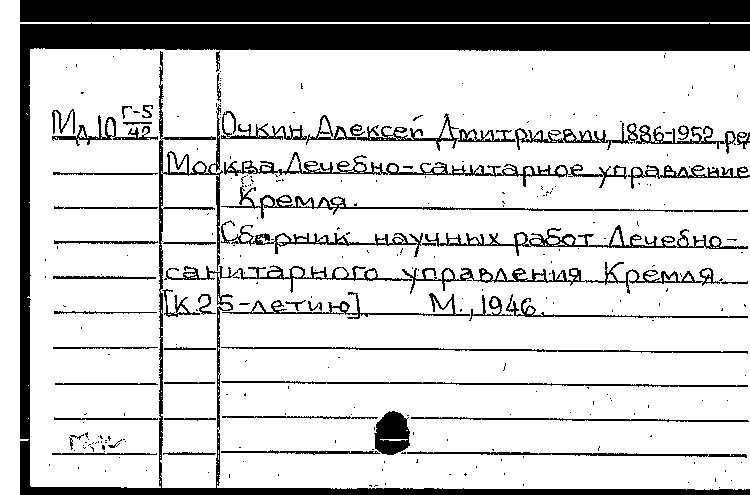 Мд 10 Г-5/42 Очкин, Алексей Дмитриевич, 1886-1952, ред
Москва. Лечебно-санитарное управление
Кремля.
Сборник научных работ Лечебно-
санитарного управления Кремля.
[К 25-летию]. М., 1946.